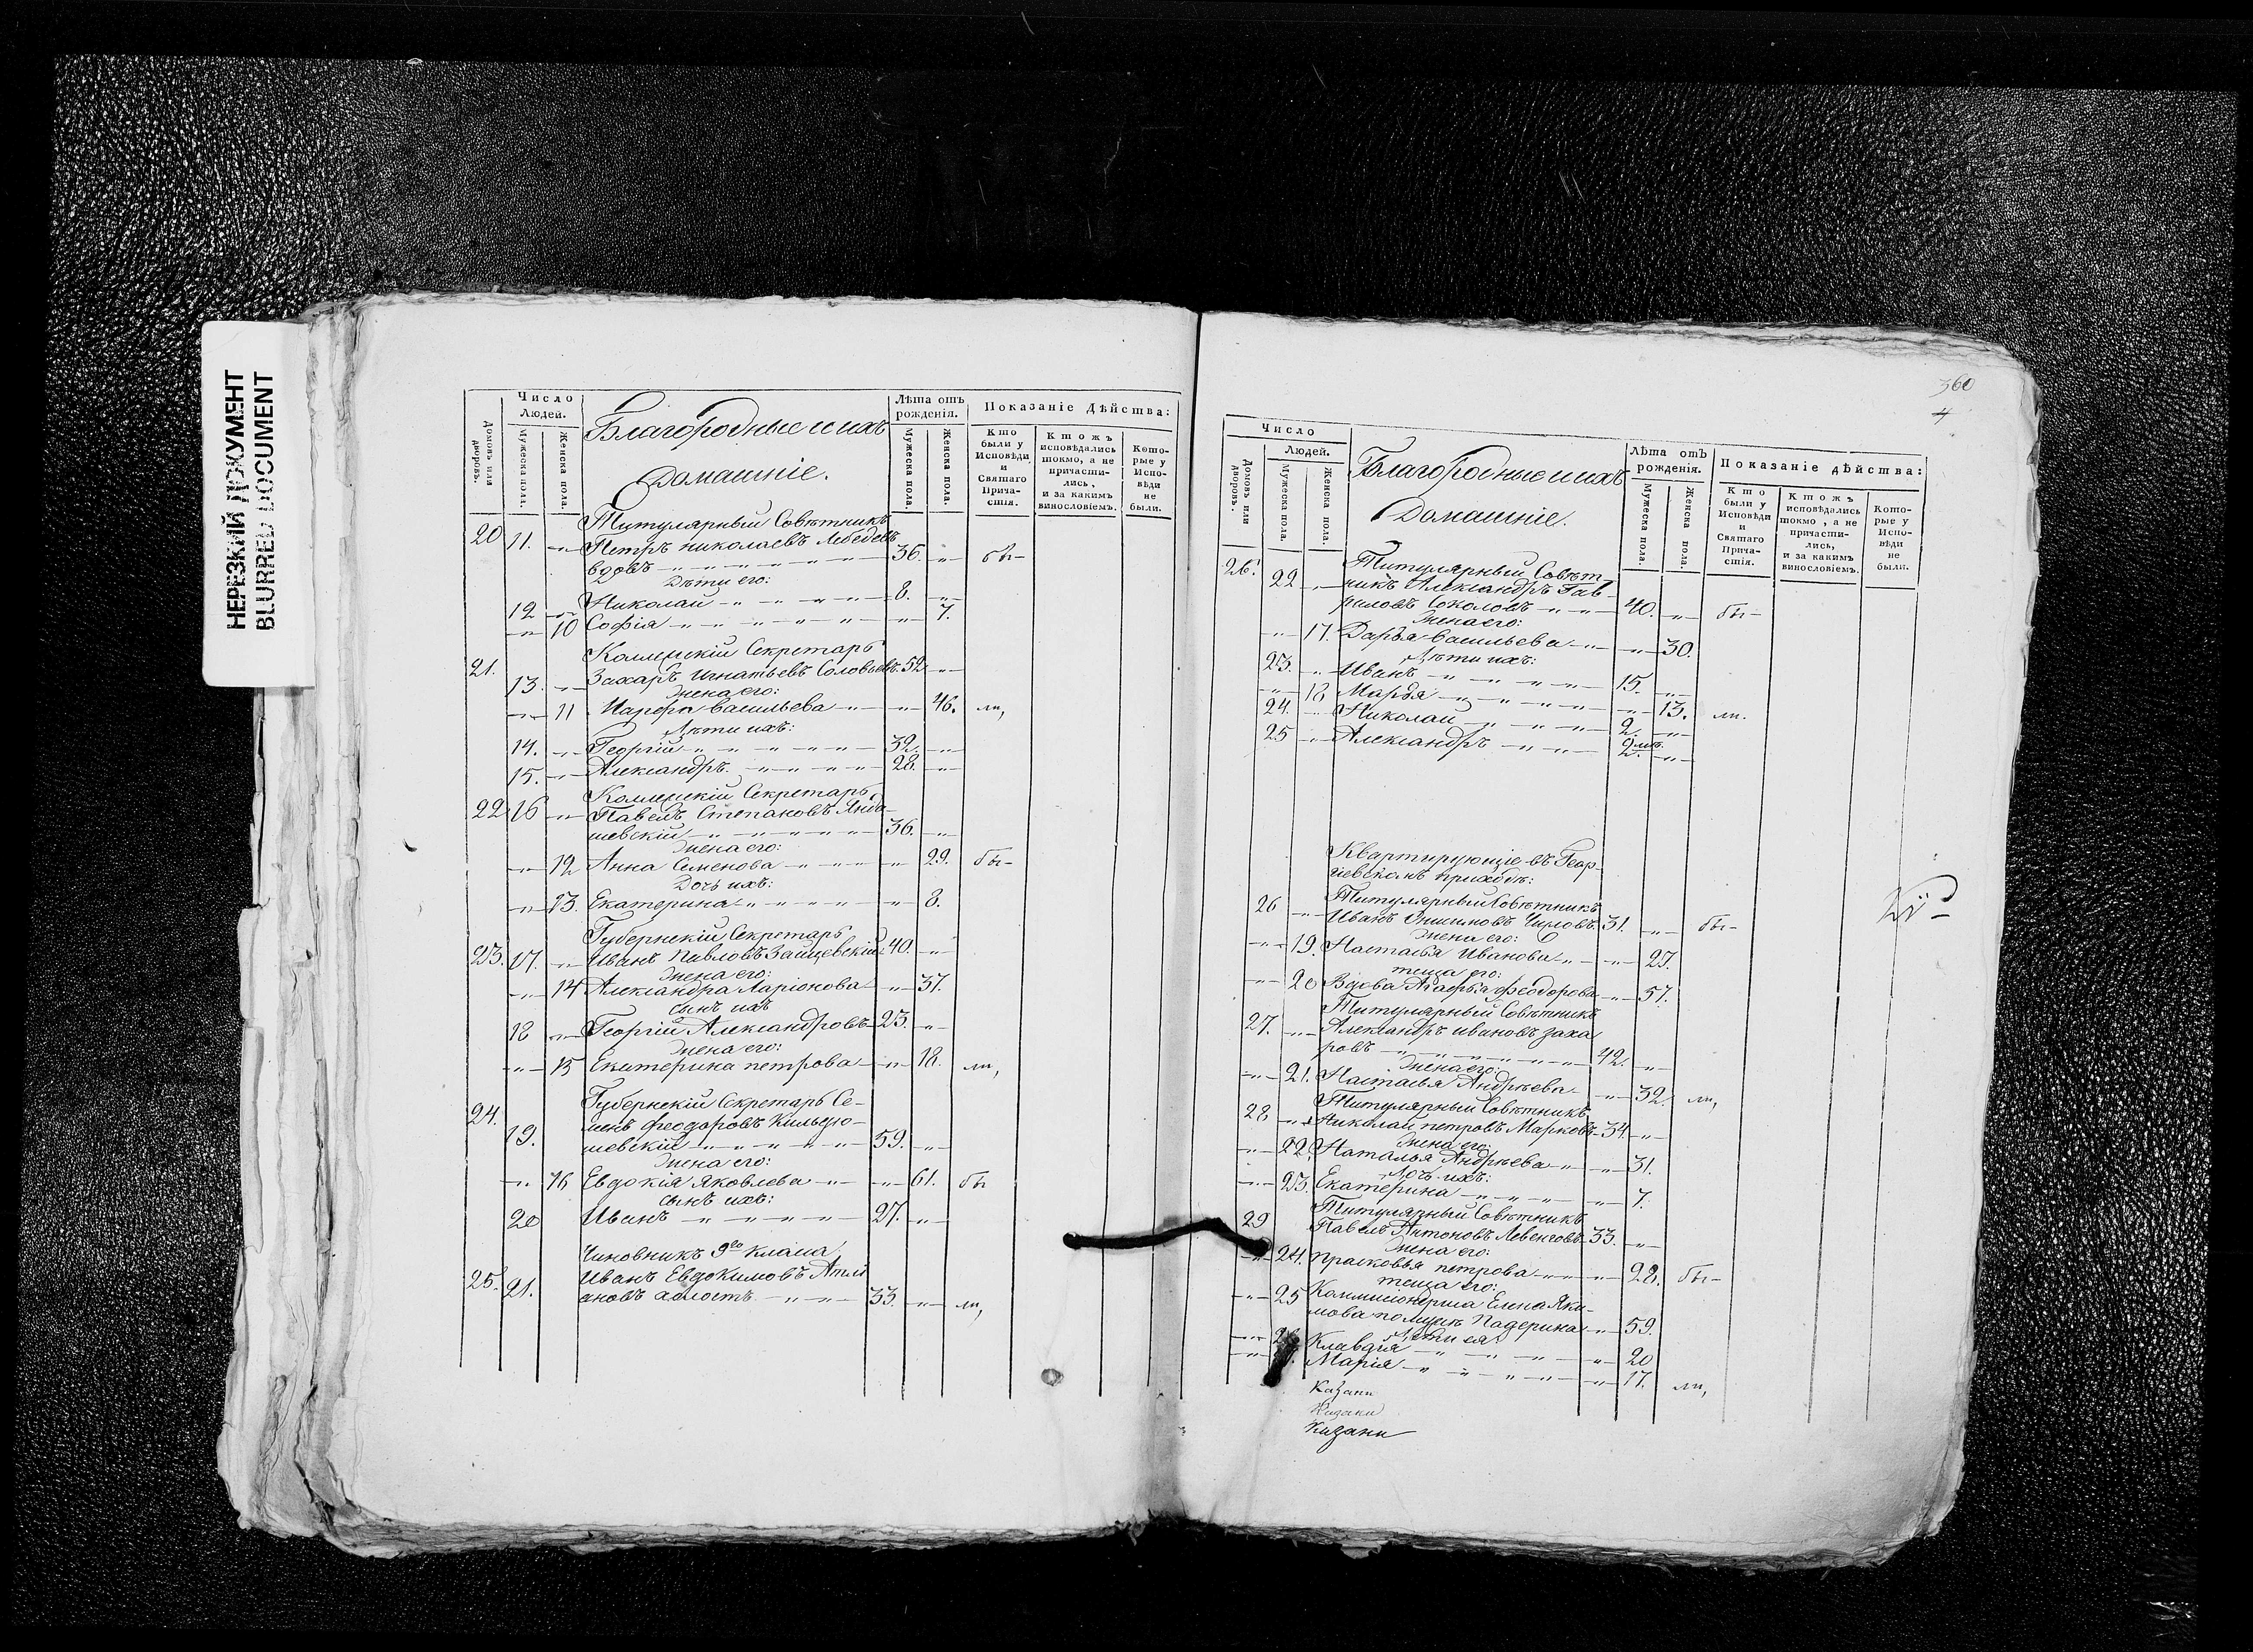 НЕРЕЗКИЙ ДОКУМЕНТ
BLURRED DOCUMENT
Число Людей.
Домовъ или дворовъ.
Мужеска пола.
Женска пола.
Благородные и ихъ
Домашніе.
Лѣта отъ рожденія.
Мужеска пола.
Женска пола.
Показаніе Дѣйства:
Кто были у Исповѣди и Святаго Прича-стія.
Ктожъ исповѣдались токмо, а не причасти-лись, и за какимъ винословіемъ.
Кото-рые у Испо-вѣди не были.
Титулярный Совѣтникъ
20 11. Петръ Николаевъ Лебедевъ
вдовъ 36. бы-
Дѣти его:
12 Николай 8.
10 Софія 7.
Коллежскій Секретарь
21. 13. Захаръ Игнатьевъ Соловьевъ 52
Жена его:
11 Марфа Васильева 46. ли,
Дѣти ихъ:
14. Георгій 32.
15. Александръ 28.
Коллежскій Секретарь
22 16 Павелъ Степановъ
шевскій 36.
Жена его:
12 Анна Семенова 29. бы-
Дочь ихъ:
13. Екатерина 8.
Губернскій Секретарь
23. 17. Иванъ Павловъ Зайцевскій 40.
Жена его:
14 Александра Ларіонова 37.
сынъ ихъ
18 Георгій Александровъ 23.
Жена его:
15 Екатерина Петрова 18. ли,
24. Губернскій Секретарь Се-
19. менъ Феодоровъ Кильдю-
шевскій 59.
Жена его:
16 Евдокія Яковлева 61. бы
сынъ ихъ:
20 Иванъ 27.
Чиновникъ 9го класа
25. 21. Иванъ Евдокимовъ
ановъ холостъ 33. ли,
360
4
Число Людей.
Домовъ или дворовъ.
Мужеска пола.
Женска пола.
Благородные и ихъ
Домашніе.
Лѣта отъ рожденія.
Мужеска пола.
Женска пола.
Показаніе дѣйства:
Кто были у Исповѣди и Святаго Прича-стія.
Ктожъ исповѣдались токмо, а не причасти-лись, и за какимъ винословіемъ.
Кото-рые у Испо-вѣди не были.
26. Титулярный Совѣт-
22 никъ Александръ Гав-
риловъ Соколовъ 40. бы-
Жена его:
17. Дарья Васильева 30.
Дѣти ихъ:
23. Иванъ 15.
18 Марья 13. ли.
24. Николай 2.
25 Александръ 2
Квартирующіе въ Геор-
гіевскомъ приходѣ:
Титулярный Совѣтникъ
26 Иванъ Онисимовъ Чирловъ 31. бы-
Жена его:
19. Настасья Иванова 25.
теща его:
20 Вдова Агафья Феодорова 57.
Титулярный Совѣтникъ
27. Александръ Ивановъ Заха
ровъ 42.
Жена его:
21. Настасья Андрѣева 32. ли,
Титулярный Совѣтникъ
28 Николай Петровъ Марковъ 34.
Жена его:
22. Наталья Андрѣева 31.
Дочь ихъ:
23. Екатерина 7.
Титулярный Совѣтникъ
29 Павелъ Антоновъ 33.
Жена его:
24. Прасковья Петрова 28. бы-
теща его:
25 Коммисіонерша Елена Яки-
мова по мужѣ Падерина 59.
Дѣти ея
Клавдія 20
Марія 17. ли,
Казани
Казани
Казани